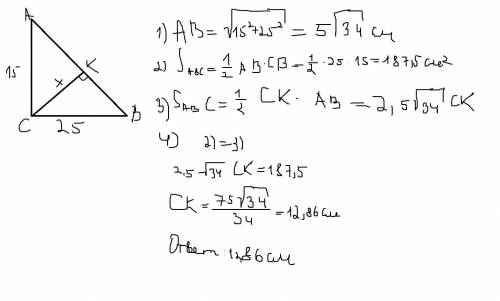 A
15
x
K
C
25
B
1) AB = √15²+25² = 5√34 см
2) S ABC = 1/2 AB·CB = 1/2 · 25 · 15 = 187,5 см²
3) S AB C = 1/2 CK · AB = 2,5√34 CK
4) 2) = 3)
2,5 √34 CK = 187,5
CK = 75√34/34 = 12,86 см
Ответ: 12,86 см